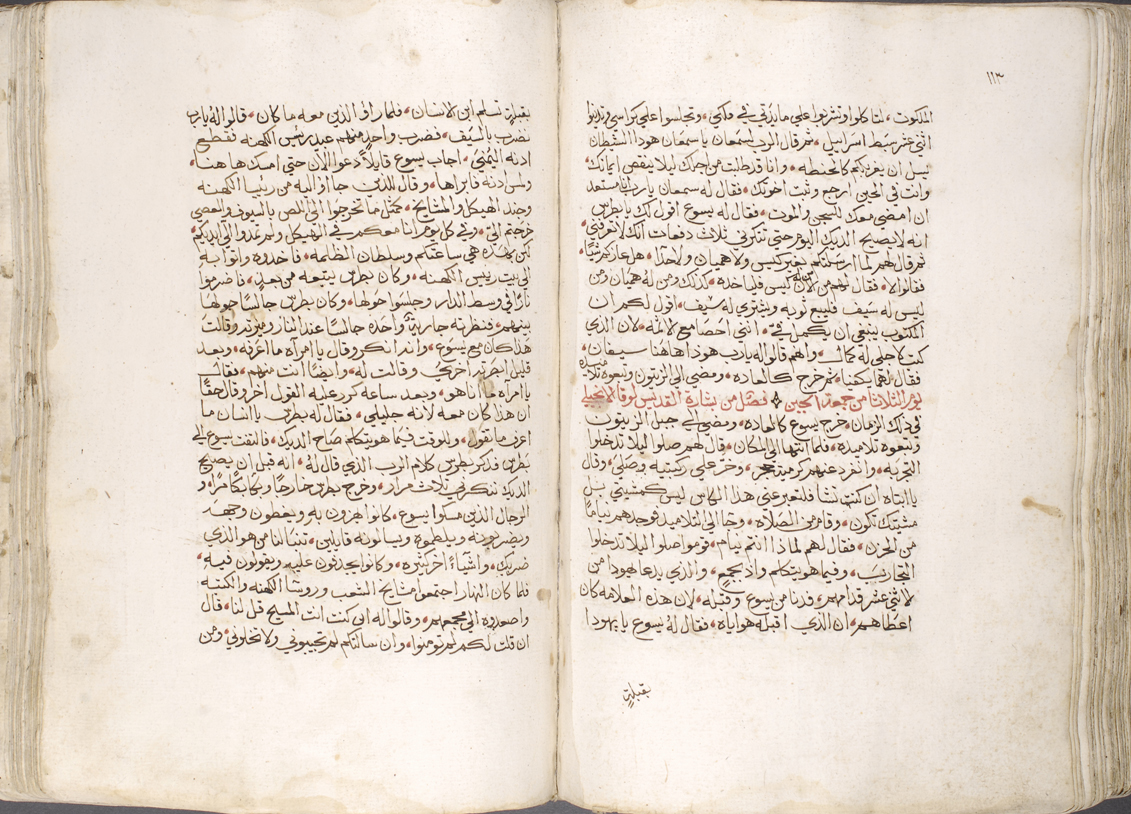 ١١٣
الملكوت، لتاكلوا وتشربوا على مايدتي في ملكي، وتجلسوا على كراسي وتدينوا
اثني عشر سبط اسراييل، ثم قال الرب لسمعان يا سمعان هودا الشيطان
يسل ان يغربلكم كالحنطه، وانا قد طلبت من اجلك ليلا ينقص ايمانك،
وانت في الحين ارجع وثبت اخوتك، فقال له سمعان يارب انا مستعد
ان امضي معك للسجن والموت، فقال له يسوع اقول لك يا بطرس
انه لا يصيح الديك اليوم حتى تنكرني ثلاث دفعات انك لا تعرفني،
ثم قال لهم لما ارسلتكم بغير كيس ولا هميان ولا حذا، هل عازكم شيًا،
فقالوا لا، فقال لهم من الان من له كيس فلياخده، كذلك ومن له هميان ومن
ليس له سيف فليبع ثوبه ويشتري له سيف، اقول لكم ان
المكتوب ينبغي ان يكمل في، انني احصا مع الاثمه، لان الذي
كتب لاجلي له كمال، وانهم قالوا له يارب هودا هاهنا سيفان،
فقال لهم يكفيا، ثم خرج كالعاده، ومضى الى الزيتون وتبعوه تلاميده
يوم الثلاثا من جمعة الجبن فصل من بشارة القديس لوقا الانجيلي
في ذلك الزمان، خرج يسوع كالعاده، ومضى الى جبل الزيتون
وتبعوه تلاميده، فلما انتها الى المكان، قال لهم صلوا ليلا تدخلوا
التجربه، وانفرد عنهم كرمية حجر، وخر على ركبتيه وصلى، وقال
يا ابتاه ان كنت تشا فلتعبر عني هذا الكاس ليس كمشيتي بل
مشيتك تكون، وقام من الصلاه، وجا الى تلاميد فوجدهم نيامًا
من الحزن، فقال لهم لماذا انتم نيام، قوموا صلوا ليلا تدخلوا
التجارب، وفيما هو يتكلم واذ بجمع، والذي يدعا يهودا من
الاثني عشر قدامهم، فدنا من يسوع وقبله، لان هذه العلامه كان
اعطاهم، ان الذي اقبله هو اياه، فقال له يسوع يا يهودا
بقبلةٍ
بقبلةٍ تسلم ابن الانسان، فلما راوُ الذين معه ما كان، قالوا له يارب
نضرب بالسيف، فضرب واحد منهم عبد ريس الكهنه فقطع
ادنه اليمني، اجاب يسوع قايلاً دعوا الان حتى امسك ها هنا،
ولمس ادنه فابراها، وقال للذين جاوا اليه من رييسا الكهنه
وجند الهيكل والمشايخ، كمثل ما تخرجوا الى اللص بالسيوف والعصي
خرجتم الي، وفي كل يوم انا معكم في الهيكل ولم تمدوا الي ايديكم،
لكن هذه هي ساعتكم وسلطان الظلمه، فاخدوه واتوا به
الى بيت رييس الكهنه، وكان بطرس يتبعه من بعدٍ، فاضرموا
نارًا في وسط الدار وجلسوا حولها، وكان بطرس جالسًا حولها
بينهم، فنظرته جاريةٌ واحده جالسًا عند النار وميزته وقالت
هذا كان مع يسوع، واندا نكر وقال يا امرآه ما اعرفه، وبعد
قليل ابصرته اخرى، وقالت له، وايضًا انت منهم، فقال
يا امراه ما انا هو، وبعد ساعه كرر عليه القول اخر وقال حقًا
ان هذا كان معه لانه جليلي، فقال له بطرس يا انسان ما
اعرف ما تقول، وللوقت فيما هو يتكلم صاح الديك، فالتفت يسوع الى
بطرس فدكر بطرس كلام الرب الذي قال له، انه قبل ان يصيح
الديك تنكرني ثلاث مرار، وخرج بطرس خارجًا وبكا بكا مرًا، و
الرجال الذين مسكوا يسوع، كانوا يهزون به ويغطون وجهه
ويضربونه ويلطموه ويسالونه قايلين، تنبا لنا من هو الذي
ضربك، واشياءً اخر كثيره، وكانوا يجدفون عليه ويقولون فيه،
فلما كان النهار اجتمعوا مشايخ الشعب وروسا الكهنه والكتبه
واصعدوه الى مجمعهم، وقالوا له ان كنت انت المسيح قل لنا، قال
ان قلت لكم لم تومنوا، وان سالتكم لم تجيبوني ولا تخلوني، ومن